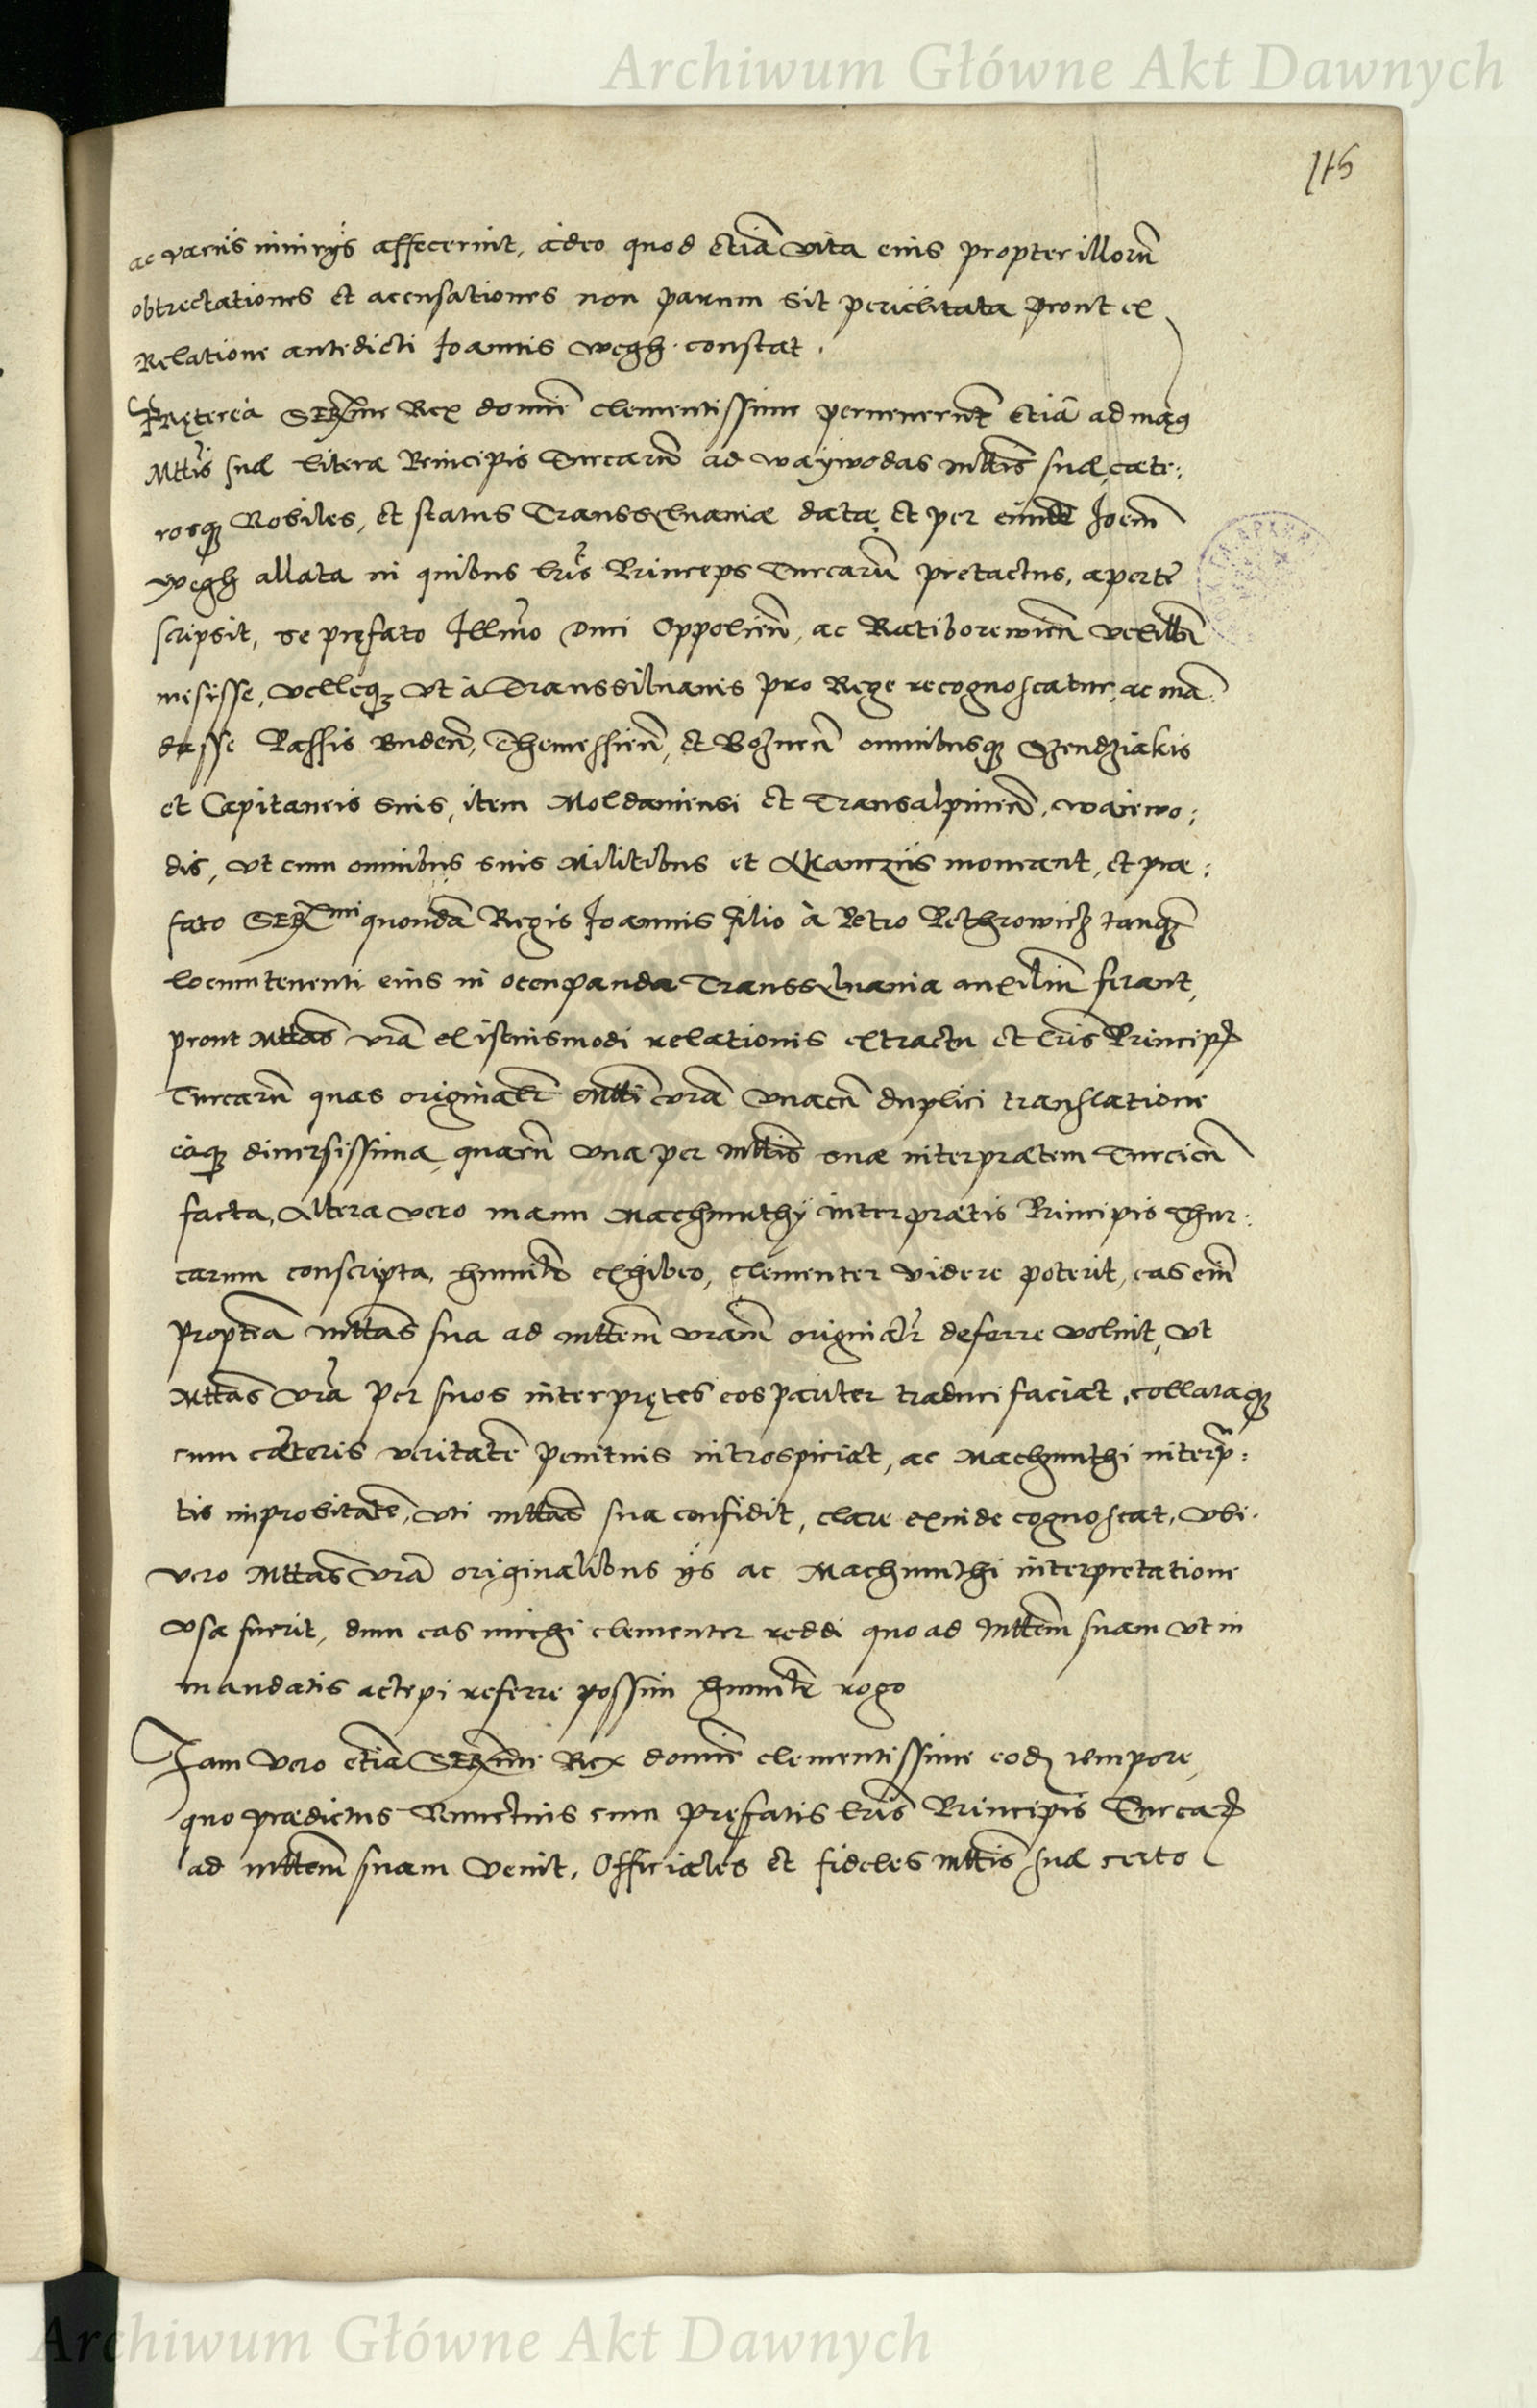 Archiwum Główne Akt Dawnych
115
ac varijs iniurijs affecerint, adeo quod etiã vita eius propter illorũ
obtrectationes et accusationes non parum sit periclitata prout ex
Relatione antedicti Joannis Wegh constat.
Pręterea SERme Rex domine clementissime peruenerũt etiã ad
Mttis suæ literæ Principis Turcarũ ad waywodas Mttis suæ, cæte:
rosq3 Nobiles, et status Transsyluaniæ datæ et per eundẽ Joem
Wegh allatæ in quibus lris Princeps Turcarũ pretactus, aperte
scripsit, se pręfato Illmo Duci Oppolien, ac Ratiborewien vexillũ
misisse, velleq3 vt à Transsiluanis pro Rege recognoscatur, ac mã
dasse Passis Buden, Themessien, et Boznen omnibusq3 Szendziakis
et Capitaneis suis, item Moldauiensi et Transalpinen. waiewo:
dis, vt cum omnibus suis Militibus et Akanziis moueant, et præ:
fato SERmi quondã Regis Joannis filio à Petro Pethrowicz tanq3
locumtenenti eius in occupanda Transsyluania auxiliũ ferant,
prout Mttas vrã ex istiusmodi relationis extractu et lris Principis
Turcarũ quas originalr Mtti vræ vnacũ duplici translatione
eaq3 diuersissima, quarũ vna per Mttis suæ interpretem Turcicũ
facta, Altera vero manu Machmuthy interpretis Principis Thur:
carum conscripta, humilr exhibeo, clementer videre poterit, eas eni
propterea Mttas sua ad Mttem vram originalr deferre voluit, vt
Mttas vrã per suos interpretes eos pariter traduci faciat, collataq3
cum cæteris veritatẽ penitus introspiciat, ac Machmuthi interpr:
tis improbitatẽ, vti Mttas sua confidit, clare exinde cognoscat, vbi.
vero Mttas vrã originalibus ijs ac Machmuthi interpretatione
vsa fuerit, dum eas michi clementer reddi quo ad Mttem suam vt in
mandatis accepi referre possim humilr rogo
Jam vero etiã SERme Rex domine clementissime eodẽ tempore,
quo prædictus Nunctius cum pręfatis lris Principis Turcarũ
ad Mttem suam venit, Officiales et fideles Mttis suæ certo
Archiwum Główne Akt Dawnych